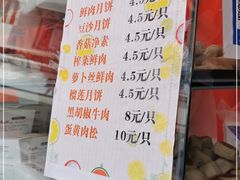 鲜肉月饼 4.5元/只
豆沙月饼 4.5元/只
香菇净素 4.5元/只
榨菜鲜肉 4.5元/只
萝卜丝鲜肉 4.5元/只
榴莲月饼 4.5元/只
黑胡椒牛肉 8元/只
蛋黄肉松 10元/只